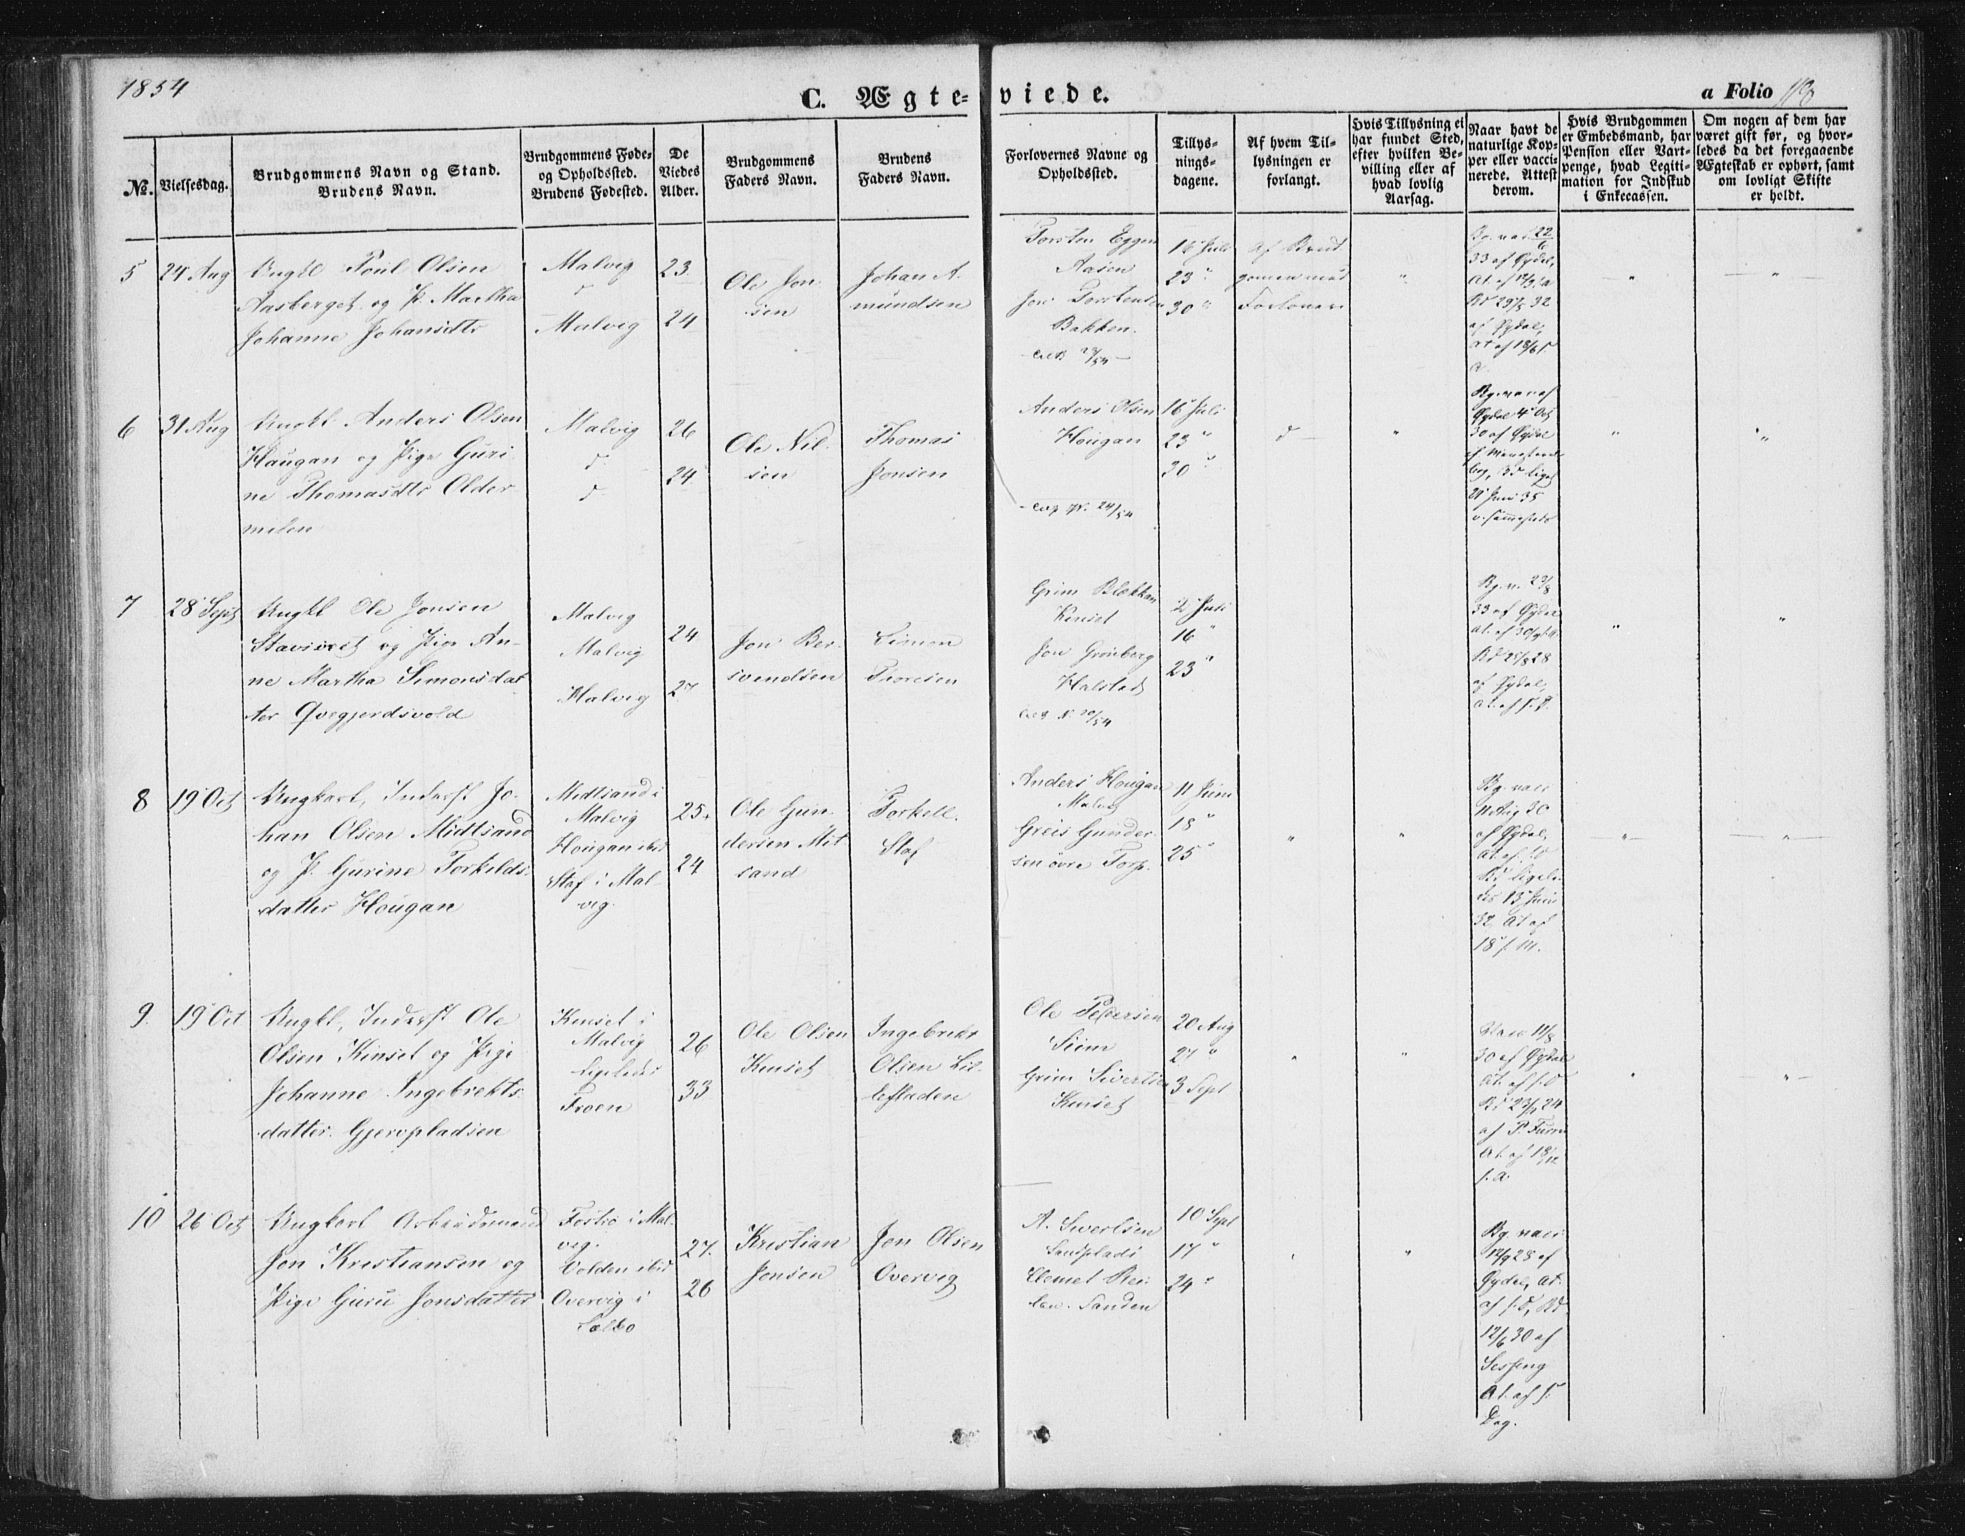 1854
C. Ægte-
viede.
a Folio
No.
Vielsesdag.
Brudgommens Navn og Stand.
Brudens Navn.
Brudgommens Føde-
og Opholdssted.
Brudens Fødested.
De
Viedes
Alder.
Brudgommens
Faders Navn.
Brudens
Faders Navn.
Forlovernes Navne og
Opholdssted.
Tillys-
nings-
dagene.
Af hvem Til-
lysningen er
forlangt.
Hvis Tillysning ei
har fundet Sted,
efter hvilken Be-
villing eller af
hvad lovlig
Aarsag.
Naar havt de
naturlige Kop-
per eller vacci-
nerede. Attest
derom.
Hvis Brudgommen
er Embedsmand, har
Pension eller Vart-
penge, hvad Legiti-
mation for Indskud
i Enkecassen.
Om nogen af dem har
været gift før, og hvor-
ledes da det foregaaende
Ægteskab er ophørt, samt
om lovligt Skifte
er holdt.
5
24 Aug
Ungkl Poul Olsen
Aasberget og P. Martha
Johanne Johansdtr
Malvig
d
Malvig
23
24
Ole Jon
sen
Johan A-
mundsen
Torsten Eggen
Aasen
Jon Torstensen
Bakken.
16 Juli
23 "
30 "
af Brud
gommen med
Forlovere
"
33 af Gydel,
af Gydel,
"
"
6
31 Aug
Ungkl Anders Olsen
Haugan og Pige Guri-
ne Thomasdtr Older
melen
Malvig
d
d
26
24
Ole Nil-
sen
Thomas
Jonsen
Anders Olsen
Hougan
16 Juli
23 "
30 "
d
"
Gydel 4 Oct
30 af Gydel
21 Juni 35
"
"
7
28 Sept
Ungkl Ole Jonsen
Stavsvet og Pige An-
ne Martha Simonsdat
ter Qvegjerdsvold
Malvig
Malvig
Malvig
24
27
Jon Ber-
svendsen
Simon
Thoresen
Grim Blekken
Kinset
Jon Grønberg
Halsted
2 Juli
16 "
23 "
33 af Gydel
af Gydel,
"
"
8
19 Oct
Ungkarl, Inderst Jo-
han Olsen Midtsand
og P. Gurine Torkilds-
datter Hougan
Midtsand i
Malvig
Hougan ibid
Staf i Mal-
vig.
25
24
Ole Gun
dersen Mit
sand
Torkell
Staf
Anders Hougan
Malvig
Greis Gunder-
sen øvre Torp.
11 Juni
18 "
25 "
"
"
Bg. vacc
11 Aug 30
af Gydel,
At. af s. D
Bd ligele
des 13 Juni
32, At af
18 s. M.
"
"
9
19 Oct
Ungkl, Inderst Ole
Olsen Kinset og Pige
Johanne Ingebrekts-
datter Gjervpladsen
Kinset i
Malvig
Ligeledes
Froen
26
33
Ole Olsen
Kinset
Ingebrekt
Olsen Lil-
lefladen
Ole Pedersen
Siem
Grim Sivertsen
Kinset
20 Aug
27 "
3 Sept
"
"
30 af Gydel
At. af s. D
s. A.
"
"
10
26 Oct
Ungkarl Arbeidsmand
Jon Kristiansen og
Pige Guru Jonsdatter
Fostrø i Mal-
vig.
Volden ibid
Overvig i
Sælbo
27
26
Kristian
Jonsen
Jon Olsen
Overvig
A. Sivertsen
Sandplads
Clemet
Sanden
10 Sept
17 "
24 "
"
"
Bg. vacc
12/9 28 af
Gydel, At.
af s. D, Bd
12/6 30 af
At. af s.
Dag.